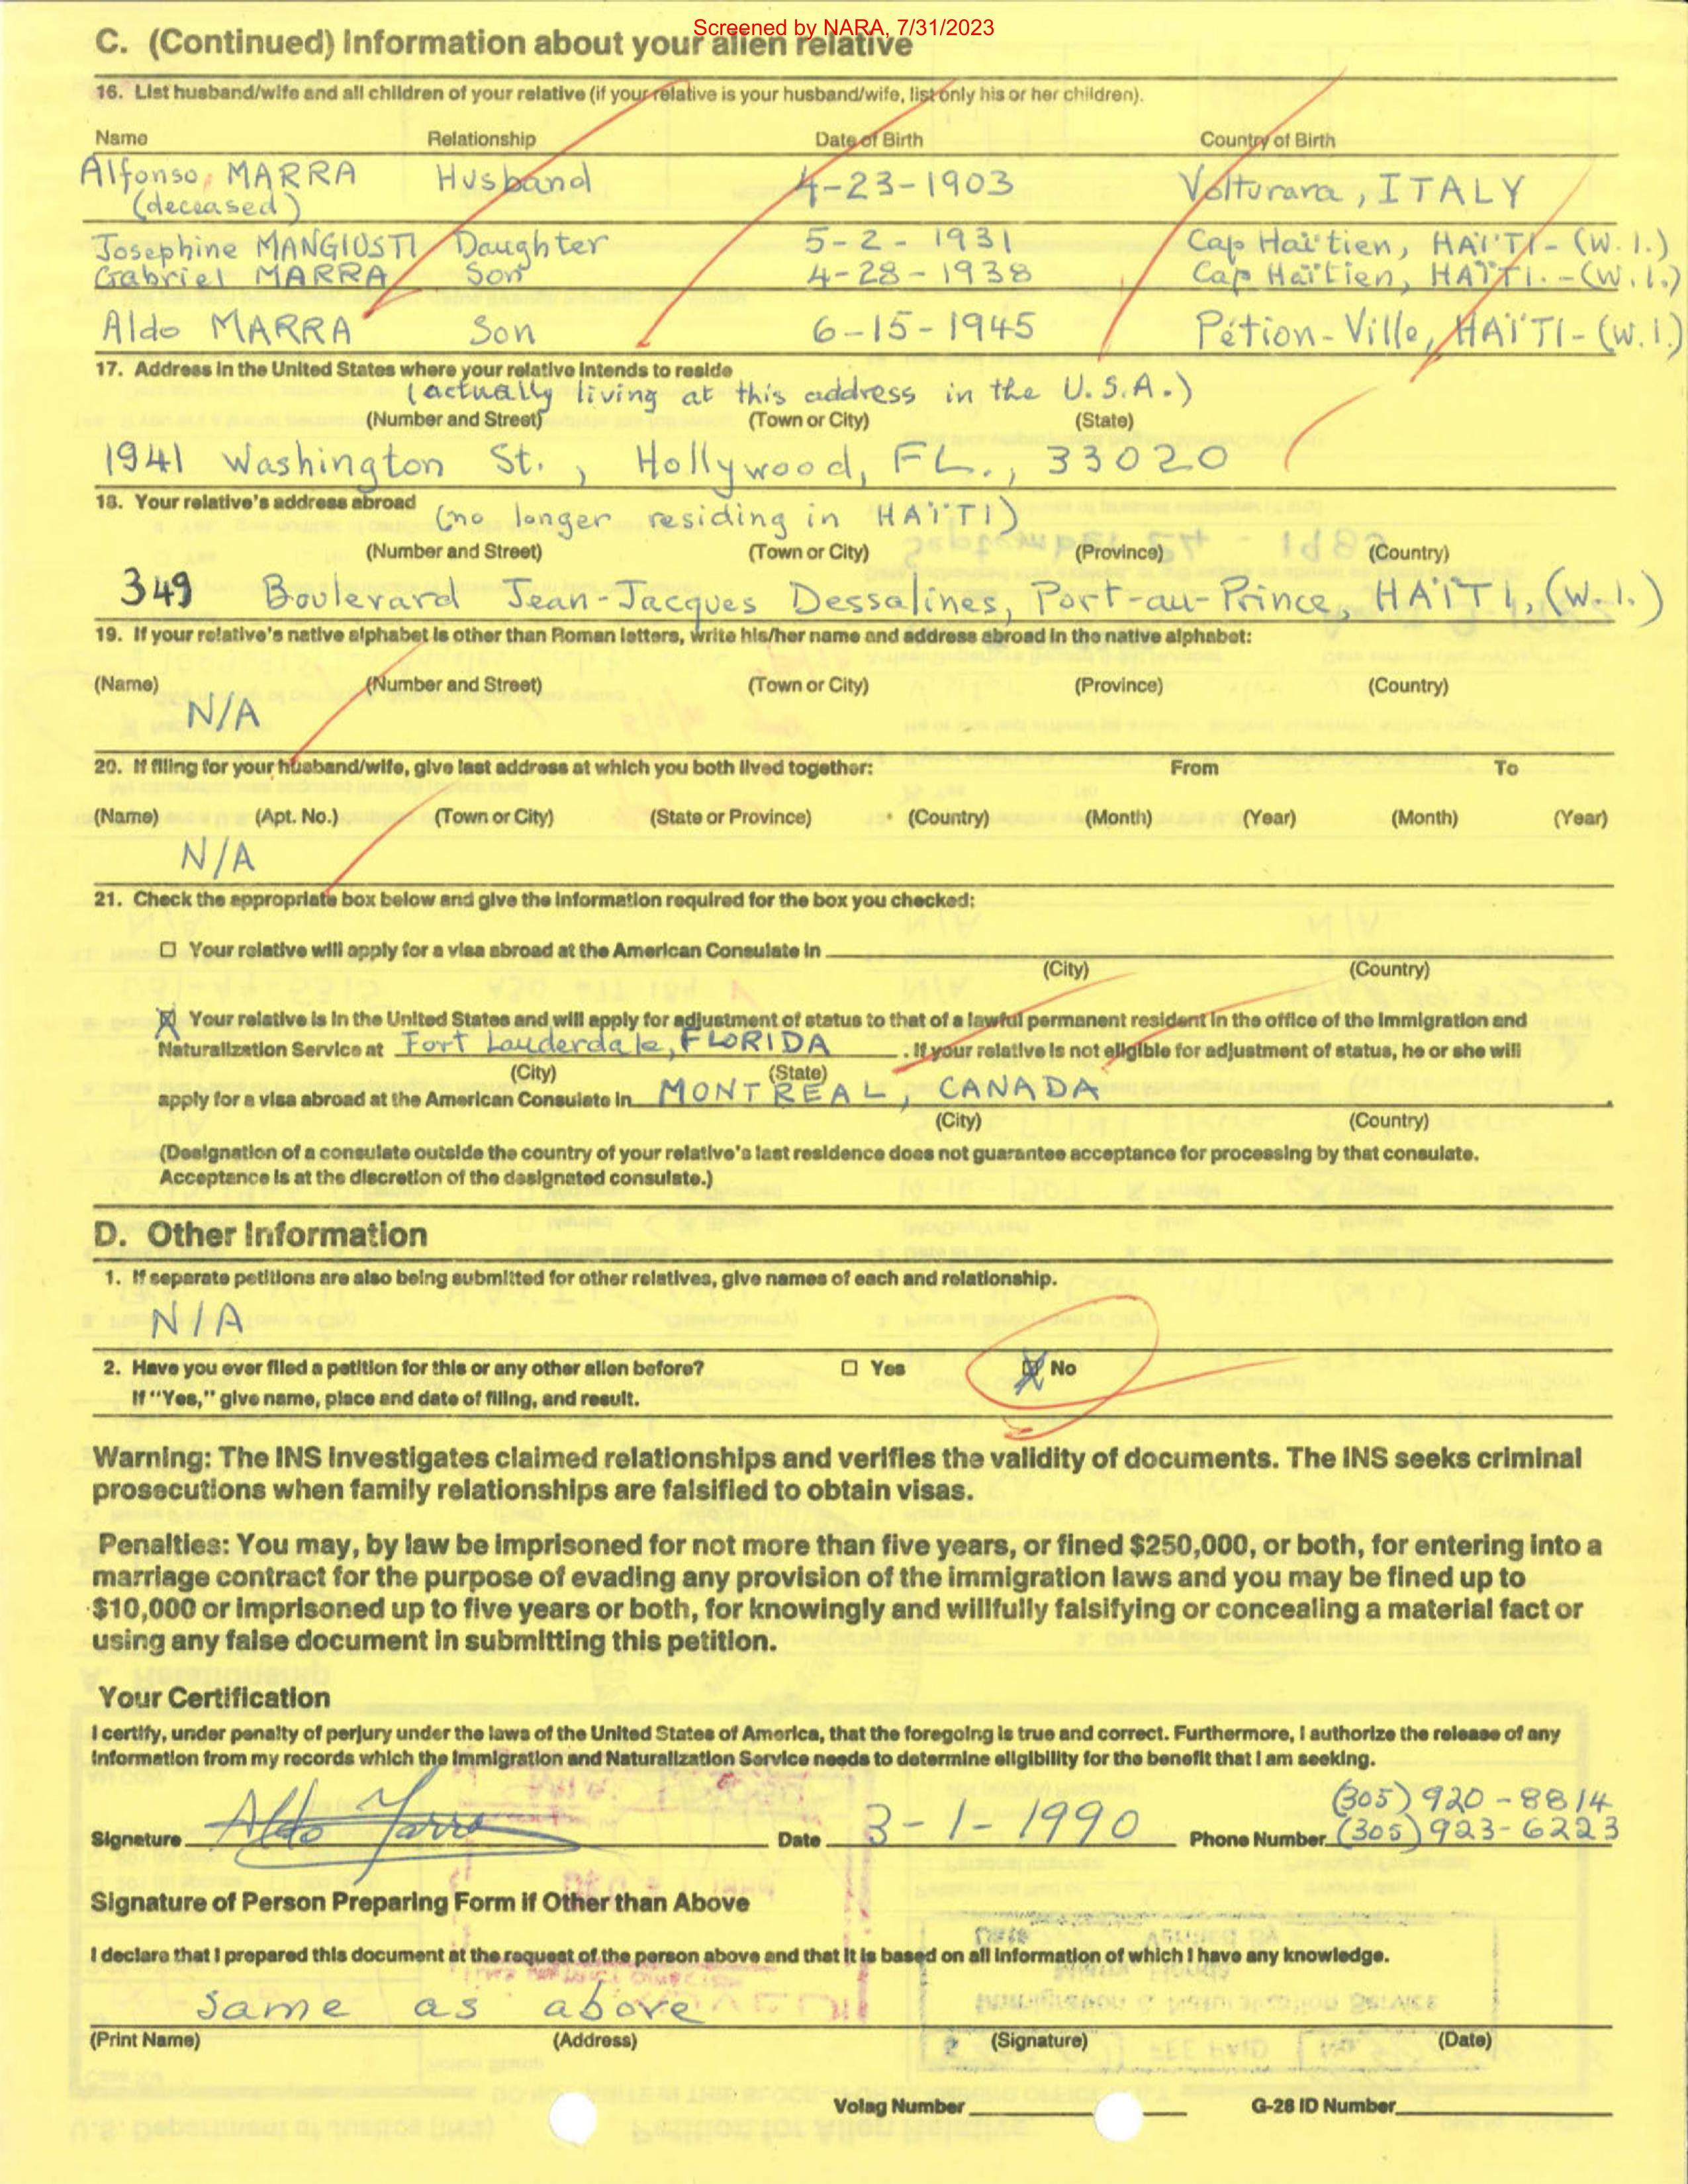 Screened by NARA, 7/31/2023
C. (Continued) Information about your alien relative
16. List husband/wife and all children of your relative (if your relative is your husband/wife, list only his or her children).
Name Relationship Date of Birth Country of Birth
Alfonso MARRA Husband 4-23-1903 Volturara, ITALY
(deceased)
Josephine MANGIUSTI Daughter 5-2-1931 Cap Haïtien, HAÏTI-(W.I.)
Gabriel MARRA Son 4-28-1938 Cap Haïtien, HAÏTI.-(W.I.)
Aldo MARRA Son 6-15-1945 Pétion-Ville, HAÏTI-(W.I.)
17. Address in the United States where your relative intends to reside
(actually living at this address in the U.S.A.)
(Number and Street) (Town or City) (State)
1941 Washington St., Hollywood, FL., 33020
18. Your relative's address abroad
(no longer residing in HAÏTI)
(Number and Street) (Town or City) (Province) (Country)
349 Boulevard Jean-Jacques Dessalines, Port-au-Prince, HAÏTI, (W.I.)
19. If your relative's native alphabet is other than Roman letters, write his/her name and address abroad in the native alphabet:
(Name) (Number and Street) (Town or City) (Province) (Country)
N/A
20. If filing for your husband/wife, give last address at which you both lived together: From To
(Name) (Apt. No.) (Town or City) (State or Province) (Country) (Month) (Year) (Month) (Year)
N/A
21. Check the appropriate box below and give the information required for the box you checked:
☐ Your relative will apply for a visa abroad at the American Consulate in
(City) (Country)
☒ Your relative is in the United States and will apply for adjustment of status to that of a lawful permanent resident in the office of the Immigration and
Naturalization Service at Fort Lauderdale, FLORIDA. If your relative is not eligible for adjustment of status, he or she will
(City) (State)
apply for a visa abroad at the American Consulate in MONTREAL, CANADA.
(City) (Country)
(Designation of a consulate outside the country of your relative's last residence does not guarantee acceptance for processing by that consulate.
Acceptance is at the discretion of the designated consulate.)
D. Other Information
1. If separate petitions are also being submitted for other relatives, give names of each and relationship.
N/A
2. Have you ever filed a petition for this or any other alien before? ☐ Yes ☒ No
If "Yes," give name, place and date of filing, and result.
Warning: The INS investigates claimed relationships and verifies the validity of documents. The INS seeks criminal
prosecutions when family relationships are falsified to obtain visas.
Penalties: You may, by law be imprisoned for not more than five years, or fined $250,000, or both, for entering into a
marriage contract for the purpose of evading any provision of the immigration laws and you may be fined up to
$10,000 or imprisoned up to five years or both, for knowingly and willfully falsifying or concealing a material fact or
using any false document in submitting this petition.
Your Certification
I certify, under penalty of perjury under the laws of the United States of America, that the foregoing is true and correct. Furthermore, I authorize the release of any
information from my records which the Immigration and Naturalization Service needs to determine eligibility for the benefit that I am seeking.
(305) 920-8814
Signature Aldo Marra Date 3-1-1990 Phone Number (305) 923-6223
Signature of Person Preparing Form if Other than Above
I declare that I prepared this document at the request of the person above and that it is based on all information of which I have any knowledge.
same as above
(Print Name) (Address) (Signature) (Date)
Volag Number G-28 ID Number